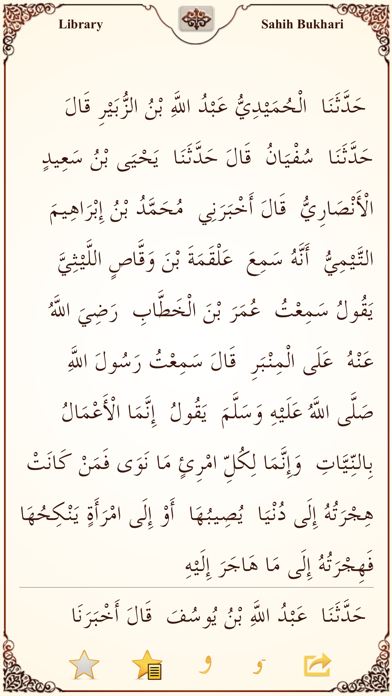 Library
Sahih Bukhari
حَدَّثَنَا الْحُمَيْدِيُّ عَبْدُ اللَّهِ بْنُ الزُّبَيْرِ قَالَ
حَدَّثَنَا سُفْيَانُ قَالَ حَدَّثَنَا يَحْيَى بْنُ سَعِيدٍ
الْأَنْصَارِيُّ قَالَ أَخْبَرَنِي مُحَمَّدُ بْنُ إِبْرَاهِيمَ
التَّيْمِيُّ أَنَّهُ سَمِعَ عَلْقَمَةَ بْنَ وَقَّاصٍ اللَّيْثِيَّ
يَقُولُ سَمِعْتُ عُمَرَ بْنَ الْخَطَّابِ رَضِيَ اللَّهُ
عَنْهُ عَلَى الْمِنْبَرِ قَالَ سَمِعْتُ رَسُولَ اللَّهِ
صَلَّى اللَّهُ عَلَيْهِ وَسَلَّمَ يَقُولُ إِنَّمَا الْأَعْمَالُ
بِالنِّيَّاتِ وَإِنَّمَا لِكُلِّ امْرِئٍ مَا نَوَى فَمَنْ كَانَتْ
هِجْرَتُهُ إِلَى دُنْيَا يُصِيبُهَا أَوْ إِلَى امْرَأَةٍ يَنْكِحُهَا
فَهِجْرَتُهُ إِلَى مَا هَاجَرَ إِلَيْهِ
حَدَّثَنَا عَبْدُ اللَّهِ بْنُ يُوسُفَ قَالَ أَخْبَرَنَا
و وَ